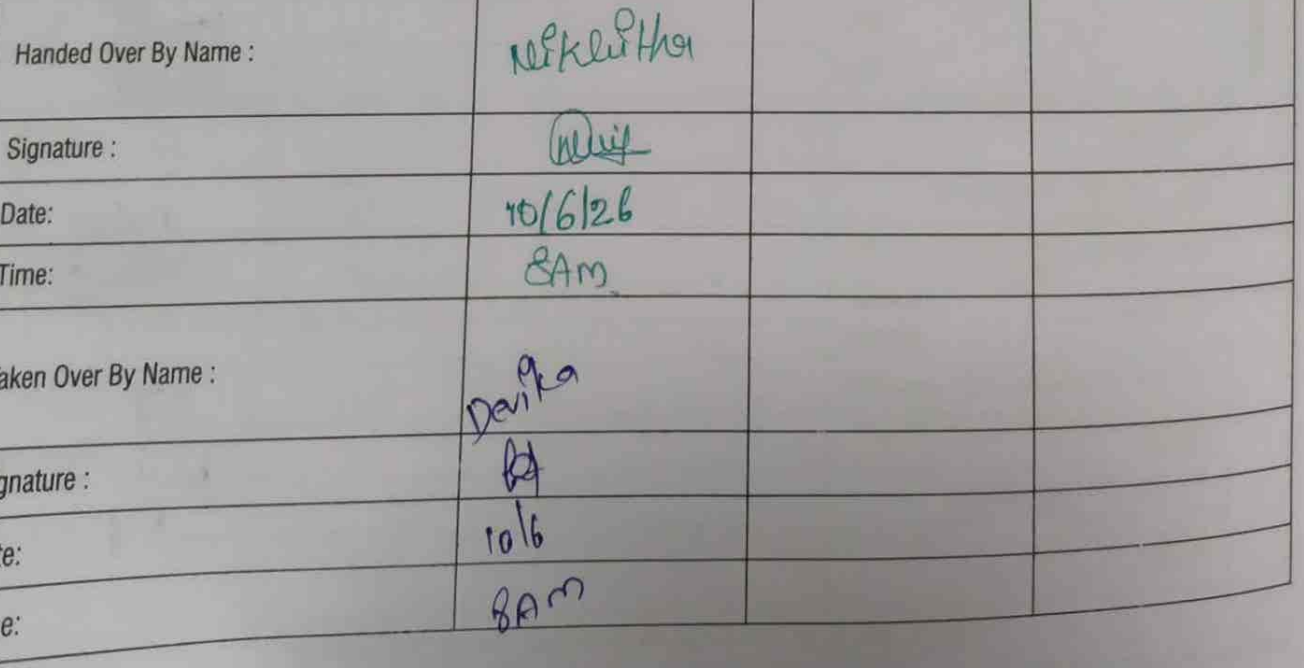 Handed Over By Name : Nikhitha
Signature :
Date: 10/6/26
Time: 8AM
aken Over By Name : Devika
gnature :
te: 10/6
e: 8AM